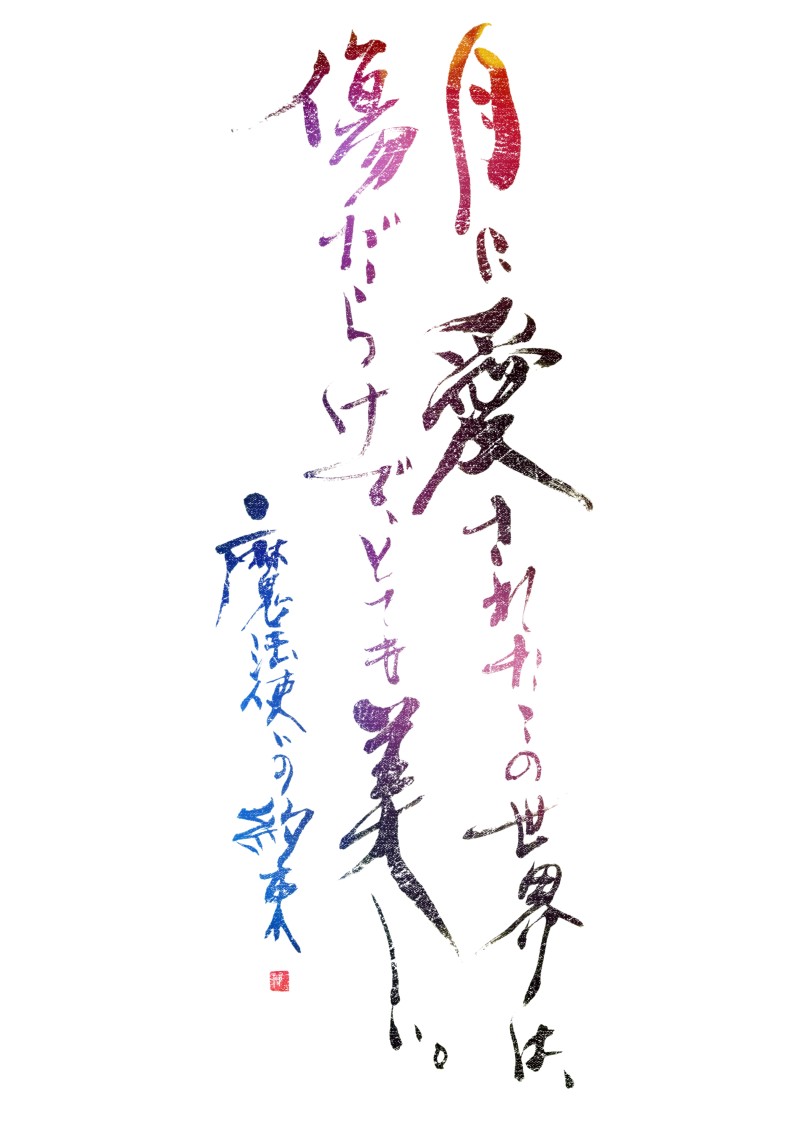 月に愛されたこの世界は、
傷だらけで、とても美しい。
魔法使いの約束